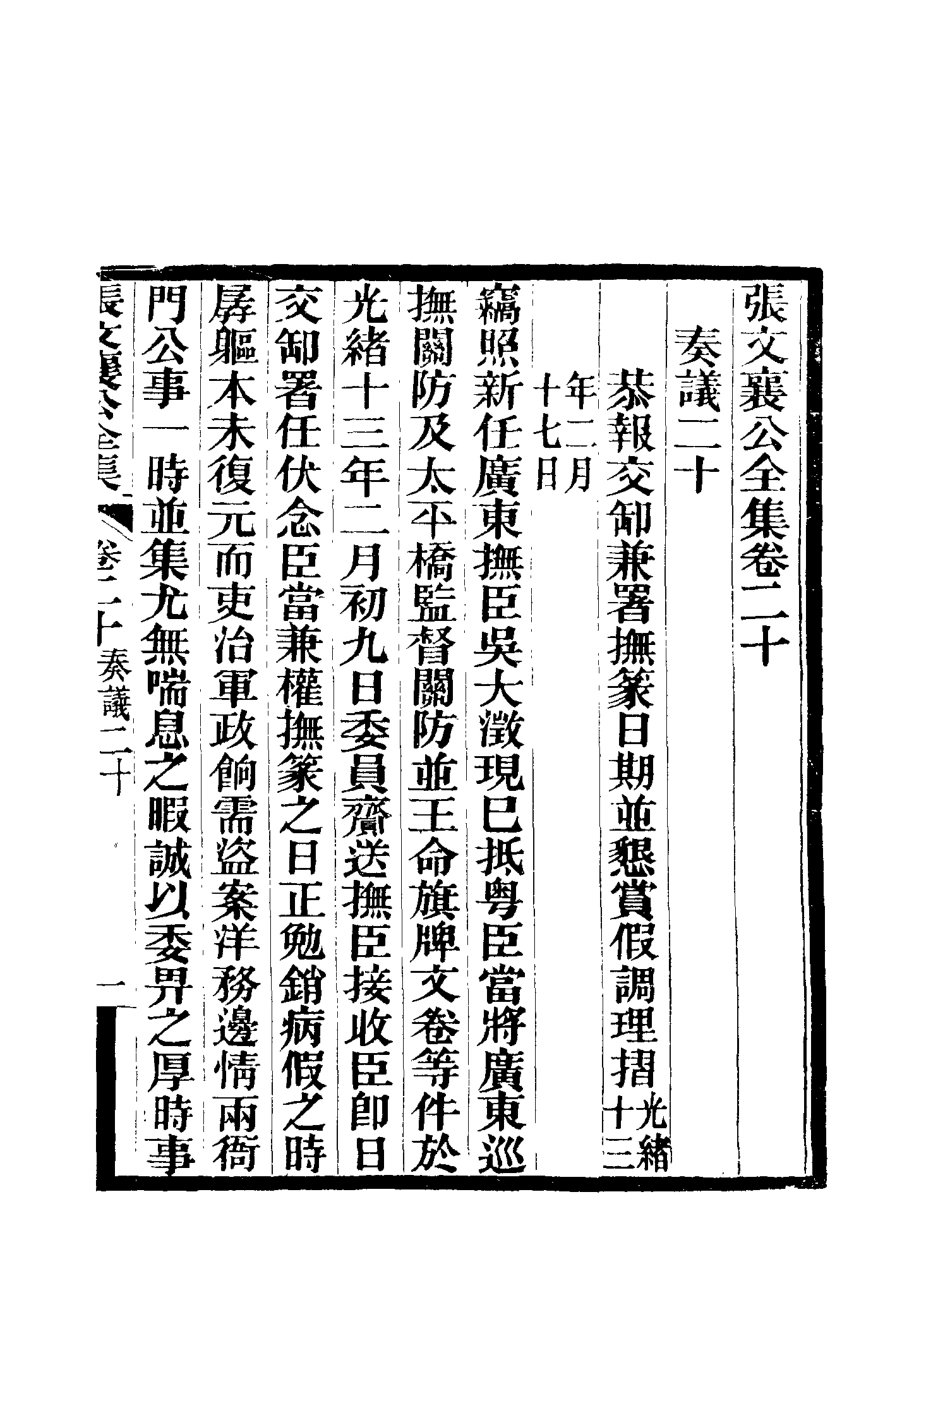 張文襄公全集卷二十
奏議二十
恭報交卸兼署撫篆日期並懇賞假調理摺光緒十三
年二月十七日
竊照新任廣東撫臣吳大澂現已抵粤臣當將廣東巡
撫關防及太平橋監督關防並王命旗牌文卷等件於
光緒十三年二月初九日委員齎送撫臣接收臣卽日
交卸署任伏念臣當兼權撫篆之日正勉銷病假之時
孱軀本未復元而吏治軍政餉需盜案洋務邊情兩衙
門公事一時並集尤無喘息之暇誠以委畀之厚時事
張文襄公全集 卷二十奏議二十 一